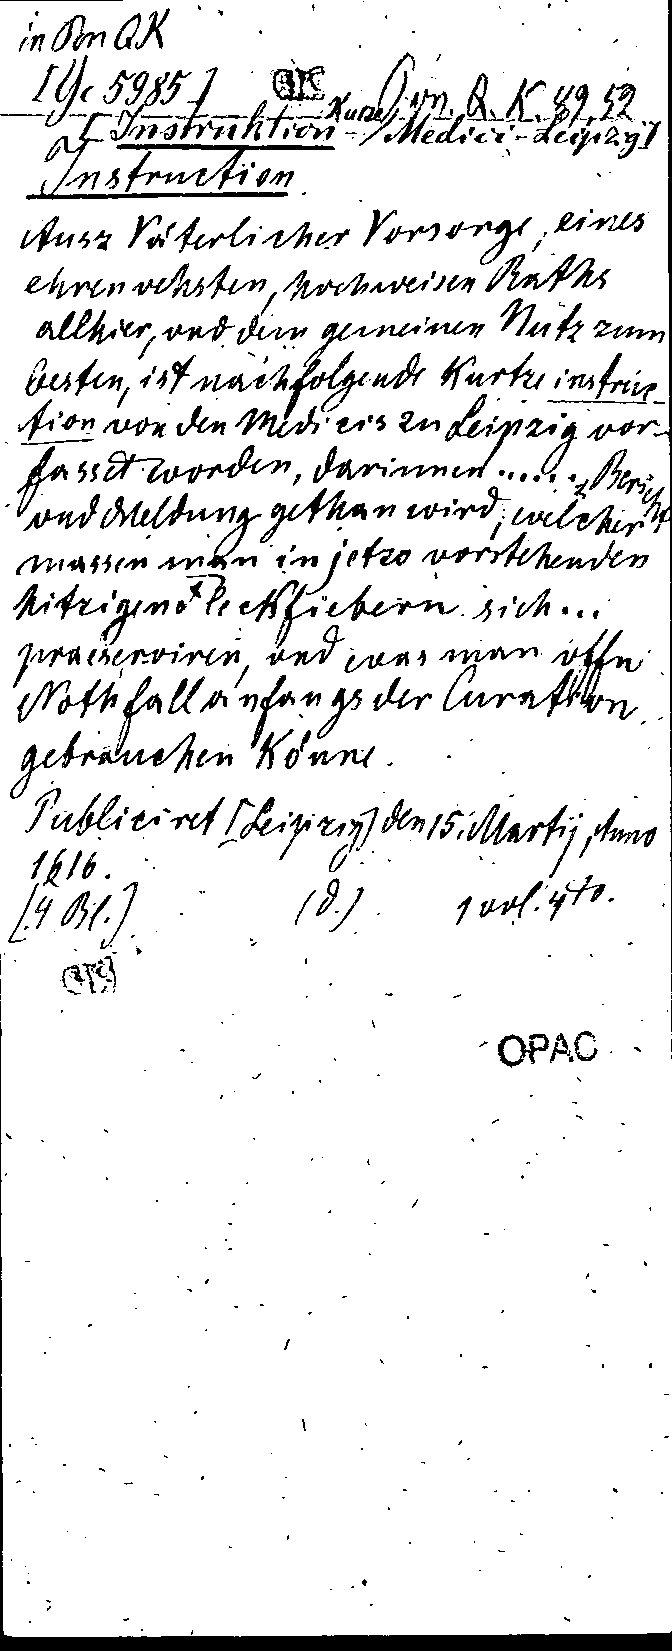 in Bn QK
[Yc 5985] Bn. Q. K. 89, 52
[Instruktion Kurze - Medici-Leipzig]
Instruction
Ausz Väterlicher Vorsorge, eines
ehrenvehsten, hochweisen Raths
allhier, vnd dem gemeinen Nutz zum
besten, ist nachfolgende Kurtze instruc-
tion von den Medicis zu Leipzig vor-
fasset worden, darinnen ..... Bericht
vnd Meldung gethan wird, welcher
massen man in jetzo vorstehenden
hitzigen Fleckfiebern sich...
praeserviren, vnd was man
Nothfall anfangs der Curation
gebrauchen Könne.
Publiciret [Leipzig] den 15. Martij, Anno
1616.
[4 Bl.] (d.) 1 vol. 4to.
OPAC